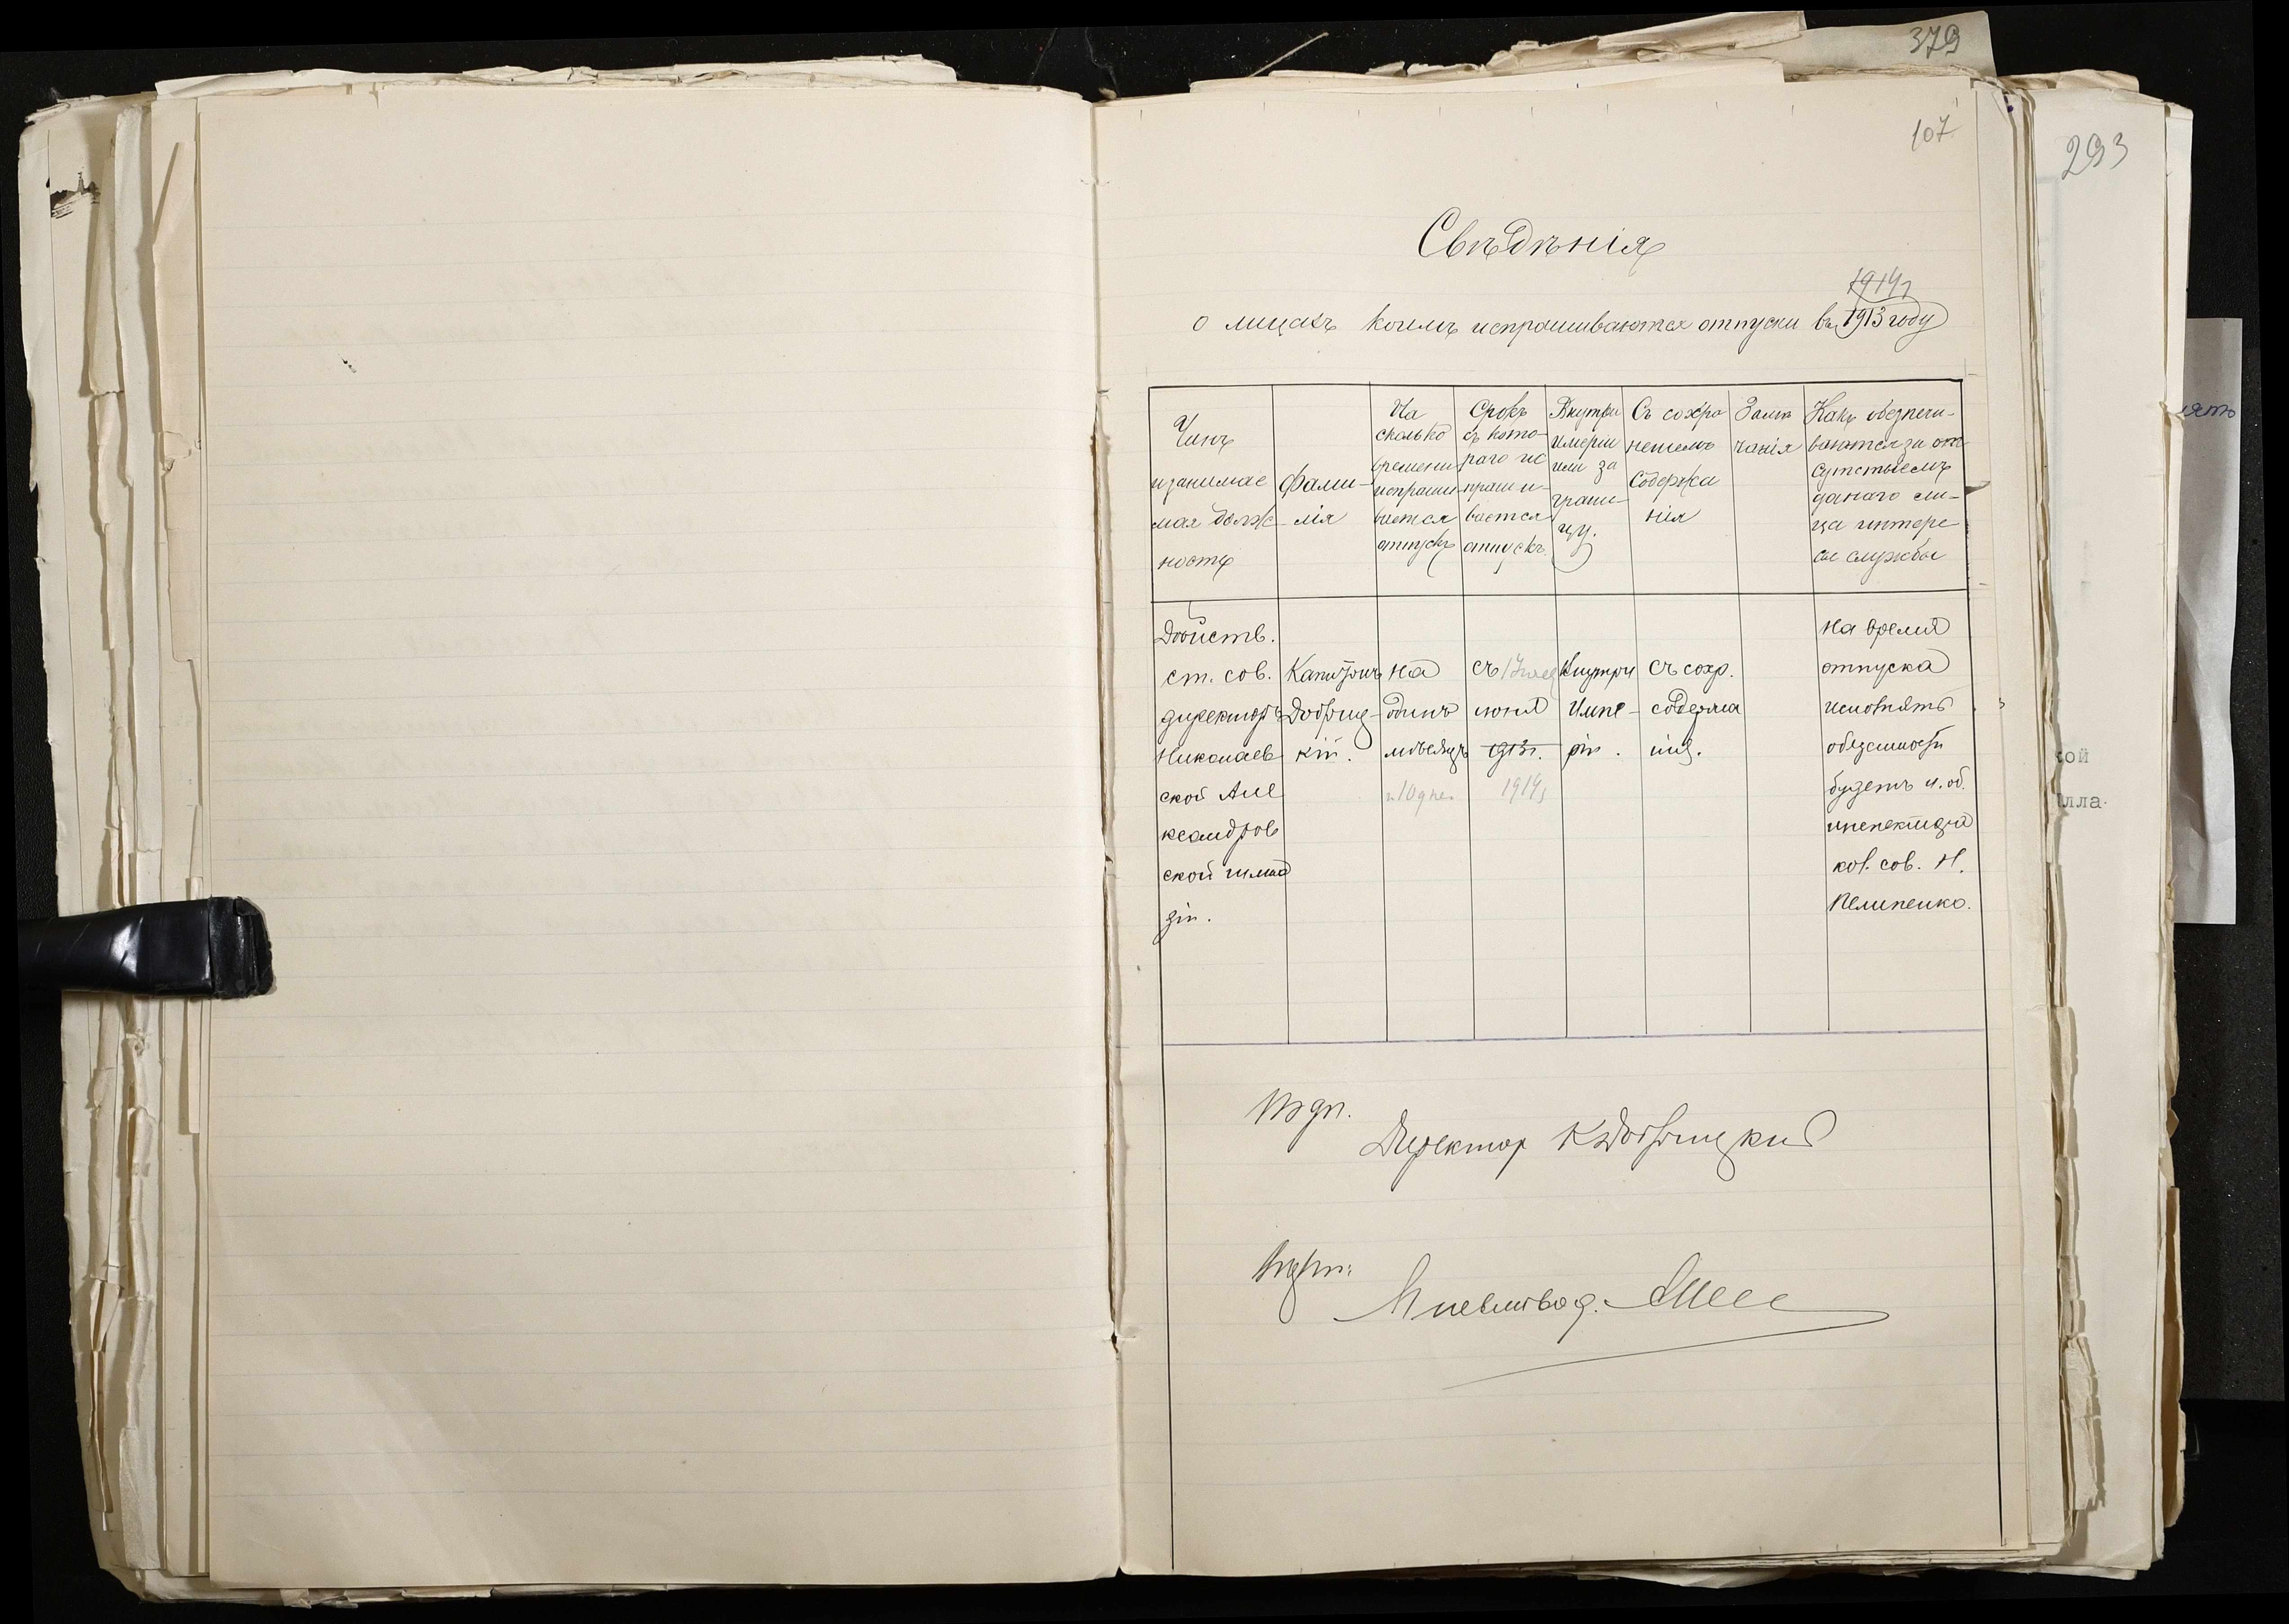 379
107
293
Свѣдѣнія
1914 г
о лицахъ коимъ испрашиваются отпуски въ 1913 году
Чинъ
и занимае
мая долж-
ность
Фами-
лія
На
сколько
времени
испраши-
вается
отпускъ
Срокъ
съ кото-
раго ис
праши-
вается
отпускъ.
Внутри
Имперіи
или за
грани-
цу.
Съ сохра
неніемъ
содержа
нія
Замѣ
чанія
Какъ обезпечи-
ваются за от
сутствіемъ
даннаго ли-
ца интере
сы службы
Дѣйств.
ст. сов.
директоръ
Николаев
ской Але
ксандров
ской гимна
зіи.
Капитонъ
Добриц-
кій.
на
одинъ
мѣсяцъ
и 10 дней
съ
іюня
1913 г.
1914 г
Внутри
Импе-
ріи.
съ сохр.
содержа
нія.
на время
отпуска
исполнять
обязанности
будетъ и. об.
инспектора
кол. сов. Н.
Пелипенко.
Подп.
Директор К Добрицкий
Вѣрно: